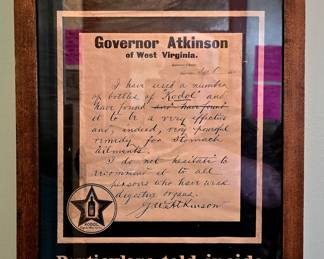 Governor Atkinson
of West Virginia.
Sept
I have used a number
of bottles of "Kodol" and
have found and have found
it to be a very effective
and, indeed, very powerful
remedy for stomach
ailments.
I do not hesitate to
recommend it to all
persons who have weak
digestive organs.
G.W. Atkinson
KODOL
Particulars told inside